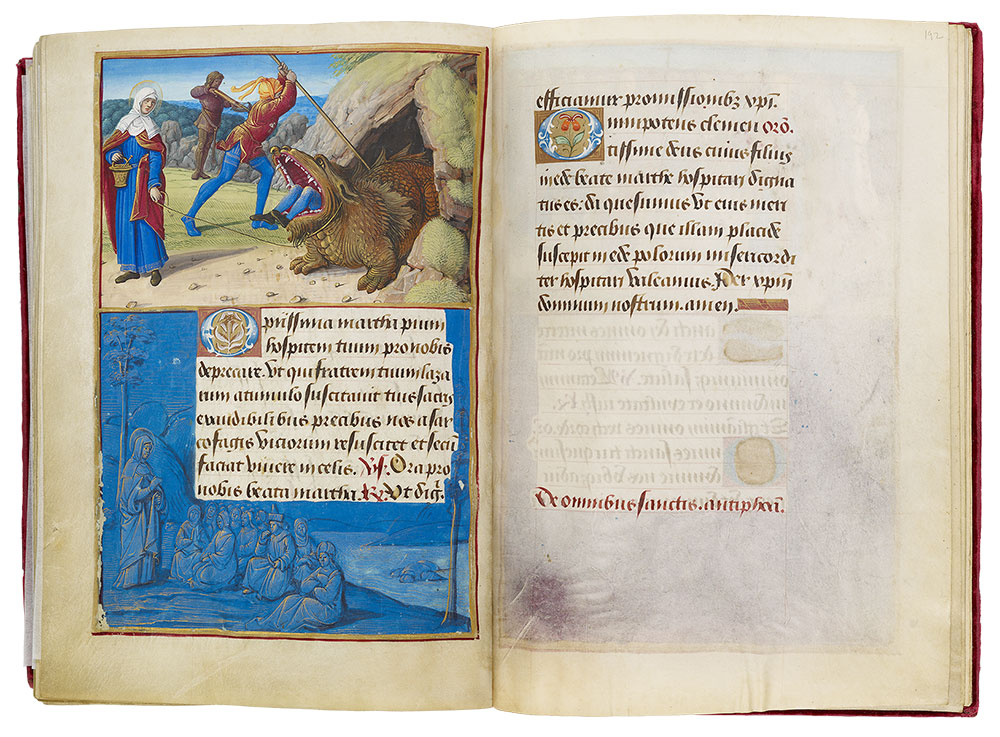 O piissima martha pium
hospitem tuum pro nobis
deprecare. Ut qui fratrem tuum laza
rum a tumulo suscitavit tuis sacris
exaudibilibus precibus nos a sar
cofagis viciorum resuscitet et secum
faciat vivere in celis. Vs. Ora pro
nobis beata martha. R. Ut dig.
192
efficiamur promissionibz xpi.
Omnipotens clemen oro.
tissime deus cuius filius
in ede beate marthe hospitari digna
tus es: da quesumus ut eius meri
tis et precibus que illam placide
suscepit in ede polorum misericordi
ter hospitari valeamus. Per xpm
dominum nostrum. amen.
De omnibus sanctis. antiphona.